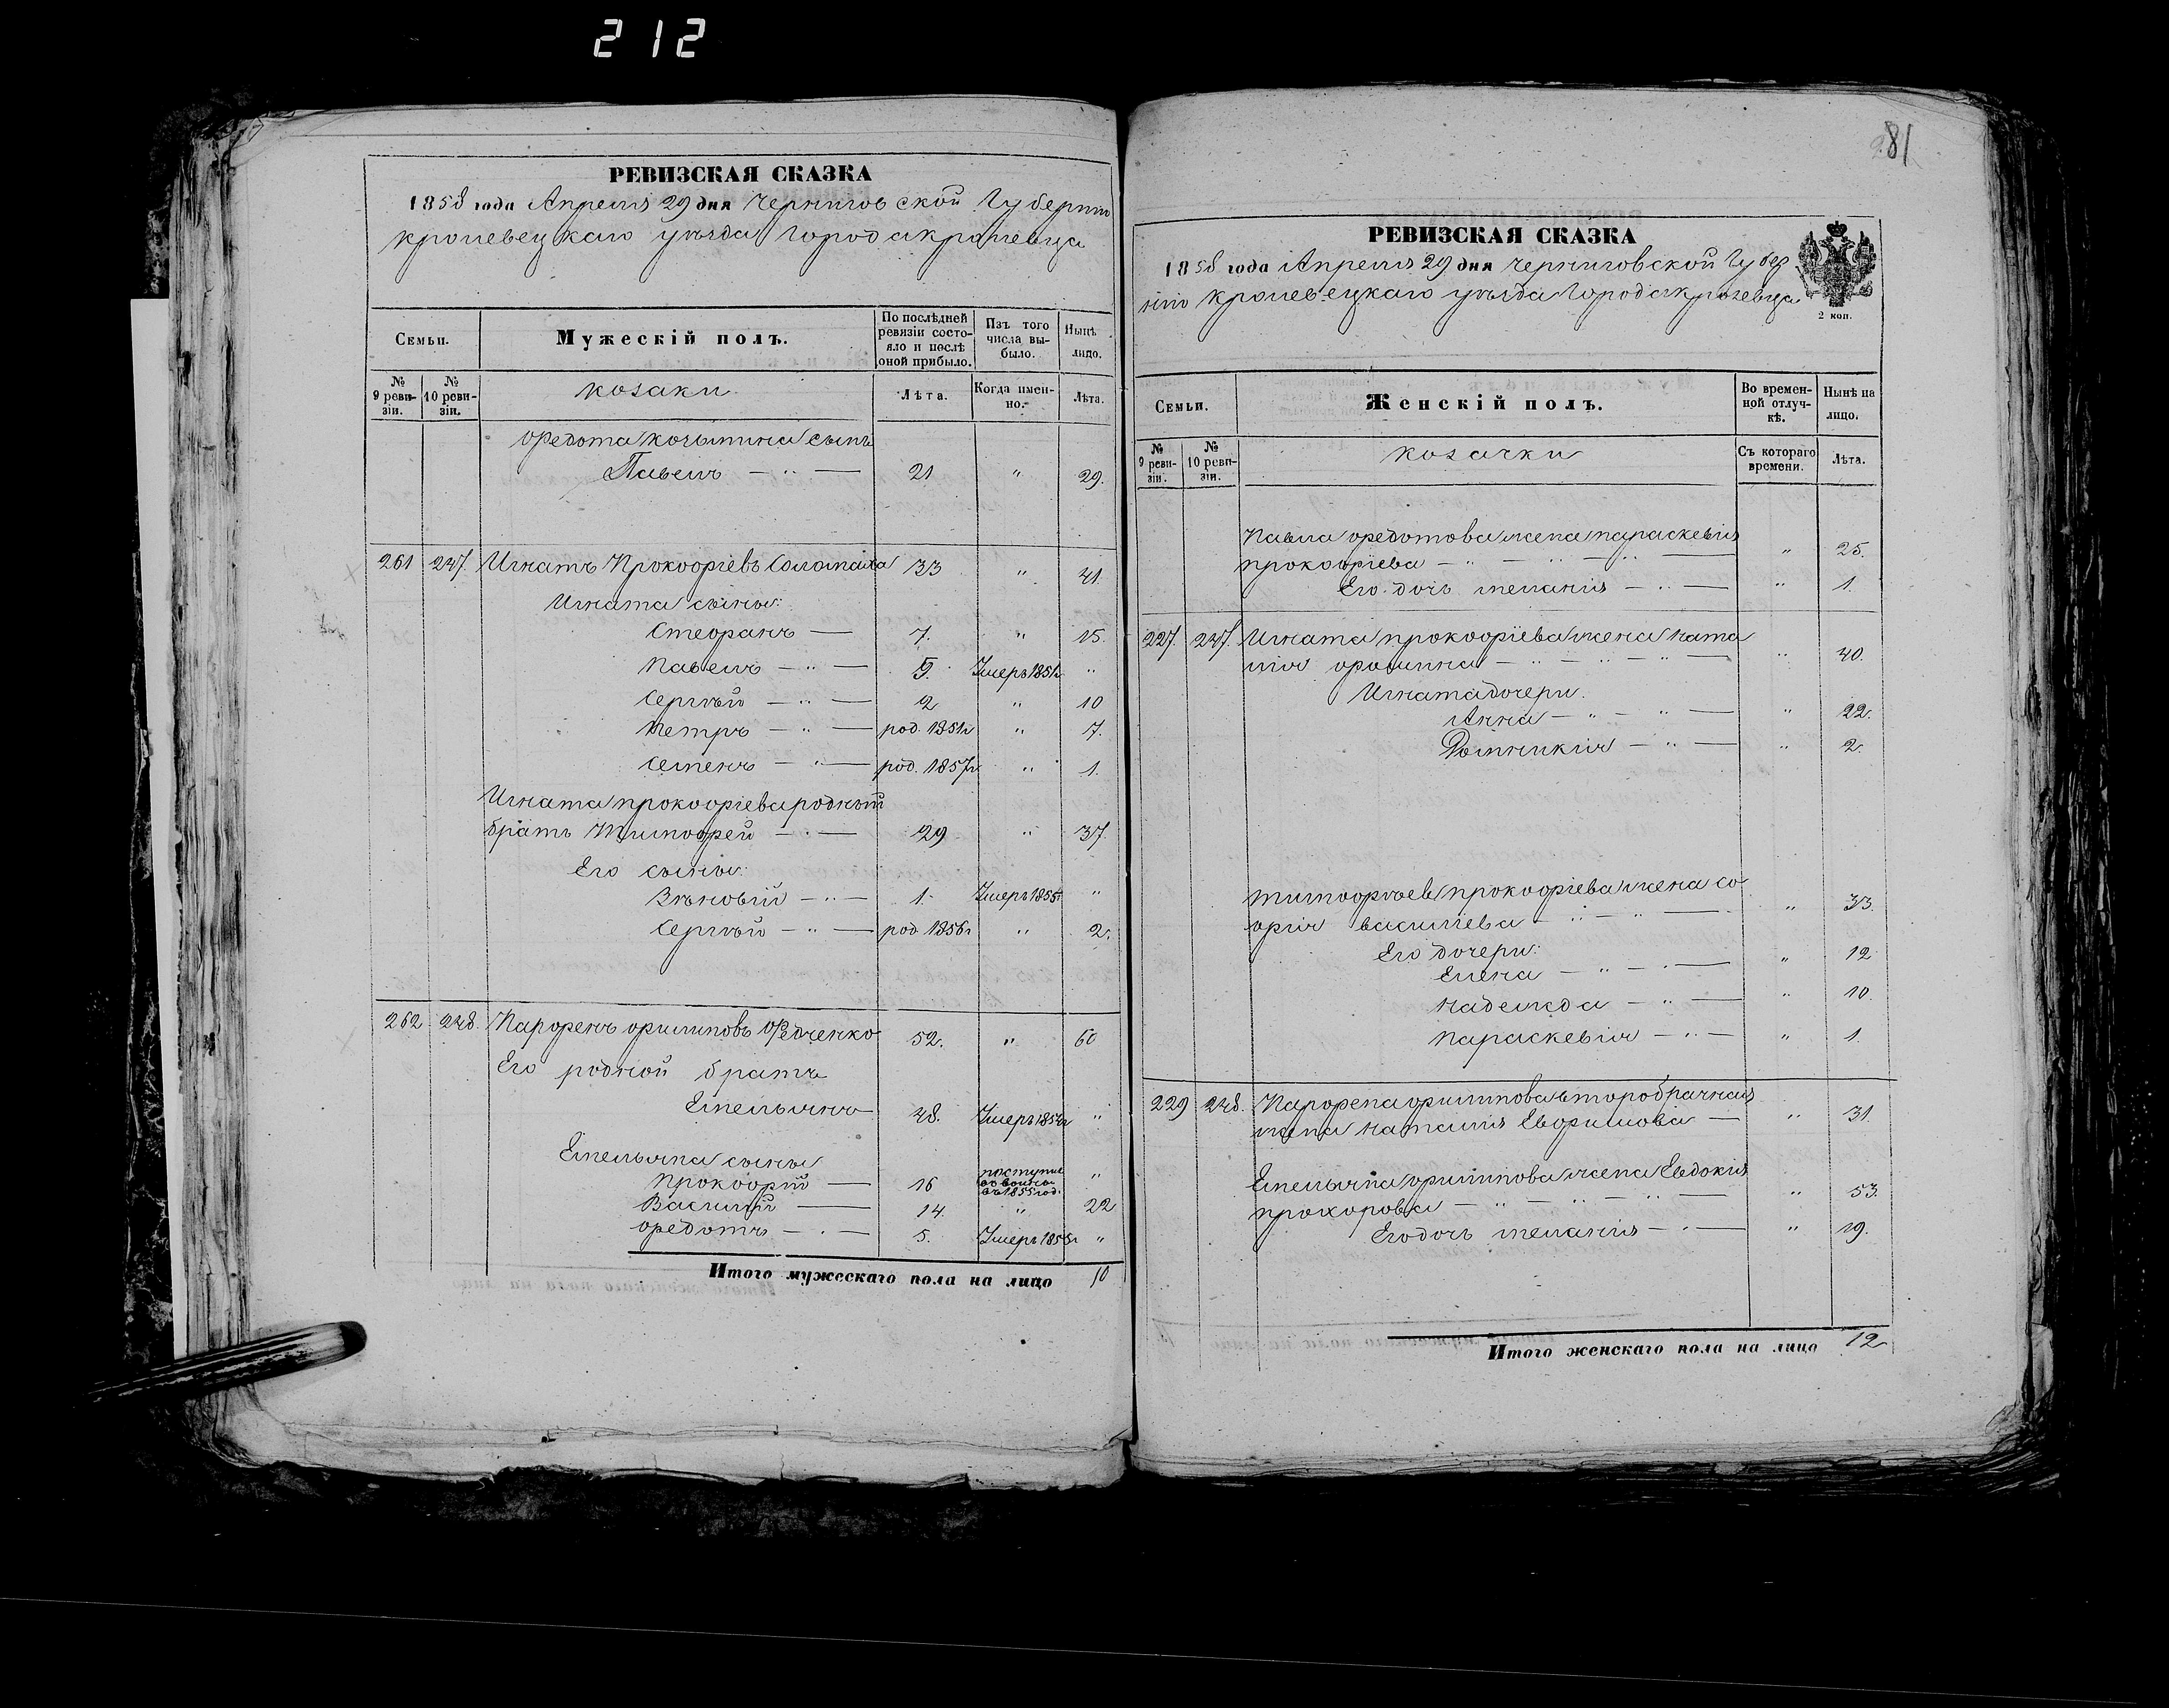 212
РЕВИЗСКАЯ СКАЗКА
1858 года Апреля 29 дня Черниговской Губерніи
кролевецкаго уѣзда города кролевца
Семьи.
Мужескій полъ.
По послѣдней ревизіи состояло и послѣ оной прибыло.
Изъ того числа выбыло.
Нынѣ лицо.
№ 9 ревизіи.
№ 10 ревизіи.
козаки
Лѣта.
Когда именно.
Лѣта.
Федота сынъ
Павелъ — " — 21 " 29.
261 247. Игнатъ Прокофіевъ Соломаха 33 " 41.
Игната сыны:
Стефанъ — 7. " 15.
Павелъ — " — 5. Умеръ 1851г "
Сергѣй — " — 2 " 10
Петръ — " — род. 1851г " 7.
Семенъ — " — род. 1857г " 1.
Игната прокофіева родный
братъ Тимофей — " — 29 " 37.
Его сыны:
Зѣновій — " — 1. Умеръ 1855г "
Сергѣй — " — род 1856г " 2.
262 248. Парфенъ филиповъ Федченко 52. " 60
Его родной братъ
Емельянъ — 48. Умеръ 1854г "
Емельяна сыны
Прокофій — 16 поступил въ 1855 год. "
Василій — 14. " 22
Федотъ — " — 5. Умеръ 1855г "
Итого мужескаго пола на лицо 10
281
РЕВИЗСКАЯ СКАЗКА
1858 года Апреля 29 дня Черниговской Губер
ніи кролевецкаго уѣзда города кролевца
2 коп.
Семьи.
Женскій полъ.
Во временной отлучкѣ.
Нынѣ на лицо.
№ 9 ревизіи.
№ 10 ревизіи.
козачки
Съ котораго времени.
Лѣта.
Павла федотова жена параскевія
прокофіева — " — " — " — " 25.
Его дочь меланія — " — " 1.
227. 247. Игната прокофіева жена ната
лія фомина — " — " — " — " 40.
Игната дочери.
Анна — " — " — " 22.
Домникія — " — " 2.
Тимофѣев прокофіева жена со
фія василіева — " — " — " 33.
Его дочери:
Елена — " — " — " 12
надежда — " — " 10.
параскевія — " — " 1.
229 248. Парфена филипова второбрачная
жена наталія Евфимова — " 31.
Емельяна филипова жена Евдокія
прохорова — " — " — " — " 53.
Его дочь меланія — " — " 19.
Итого женскаго пола на лицо 12